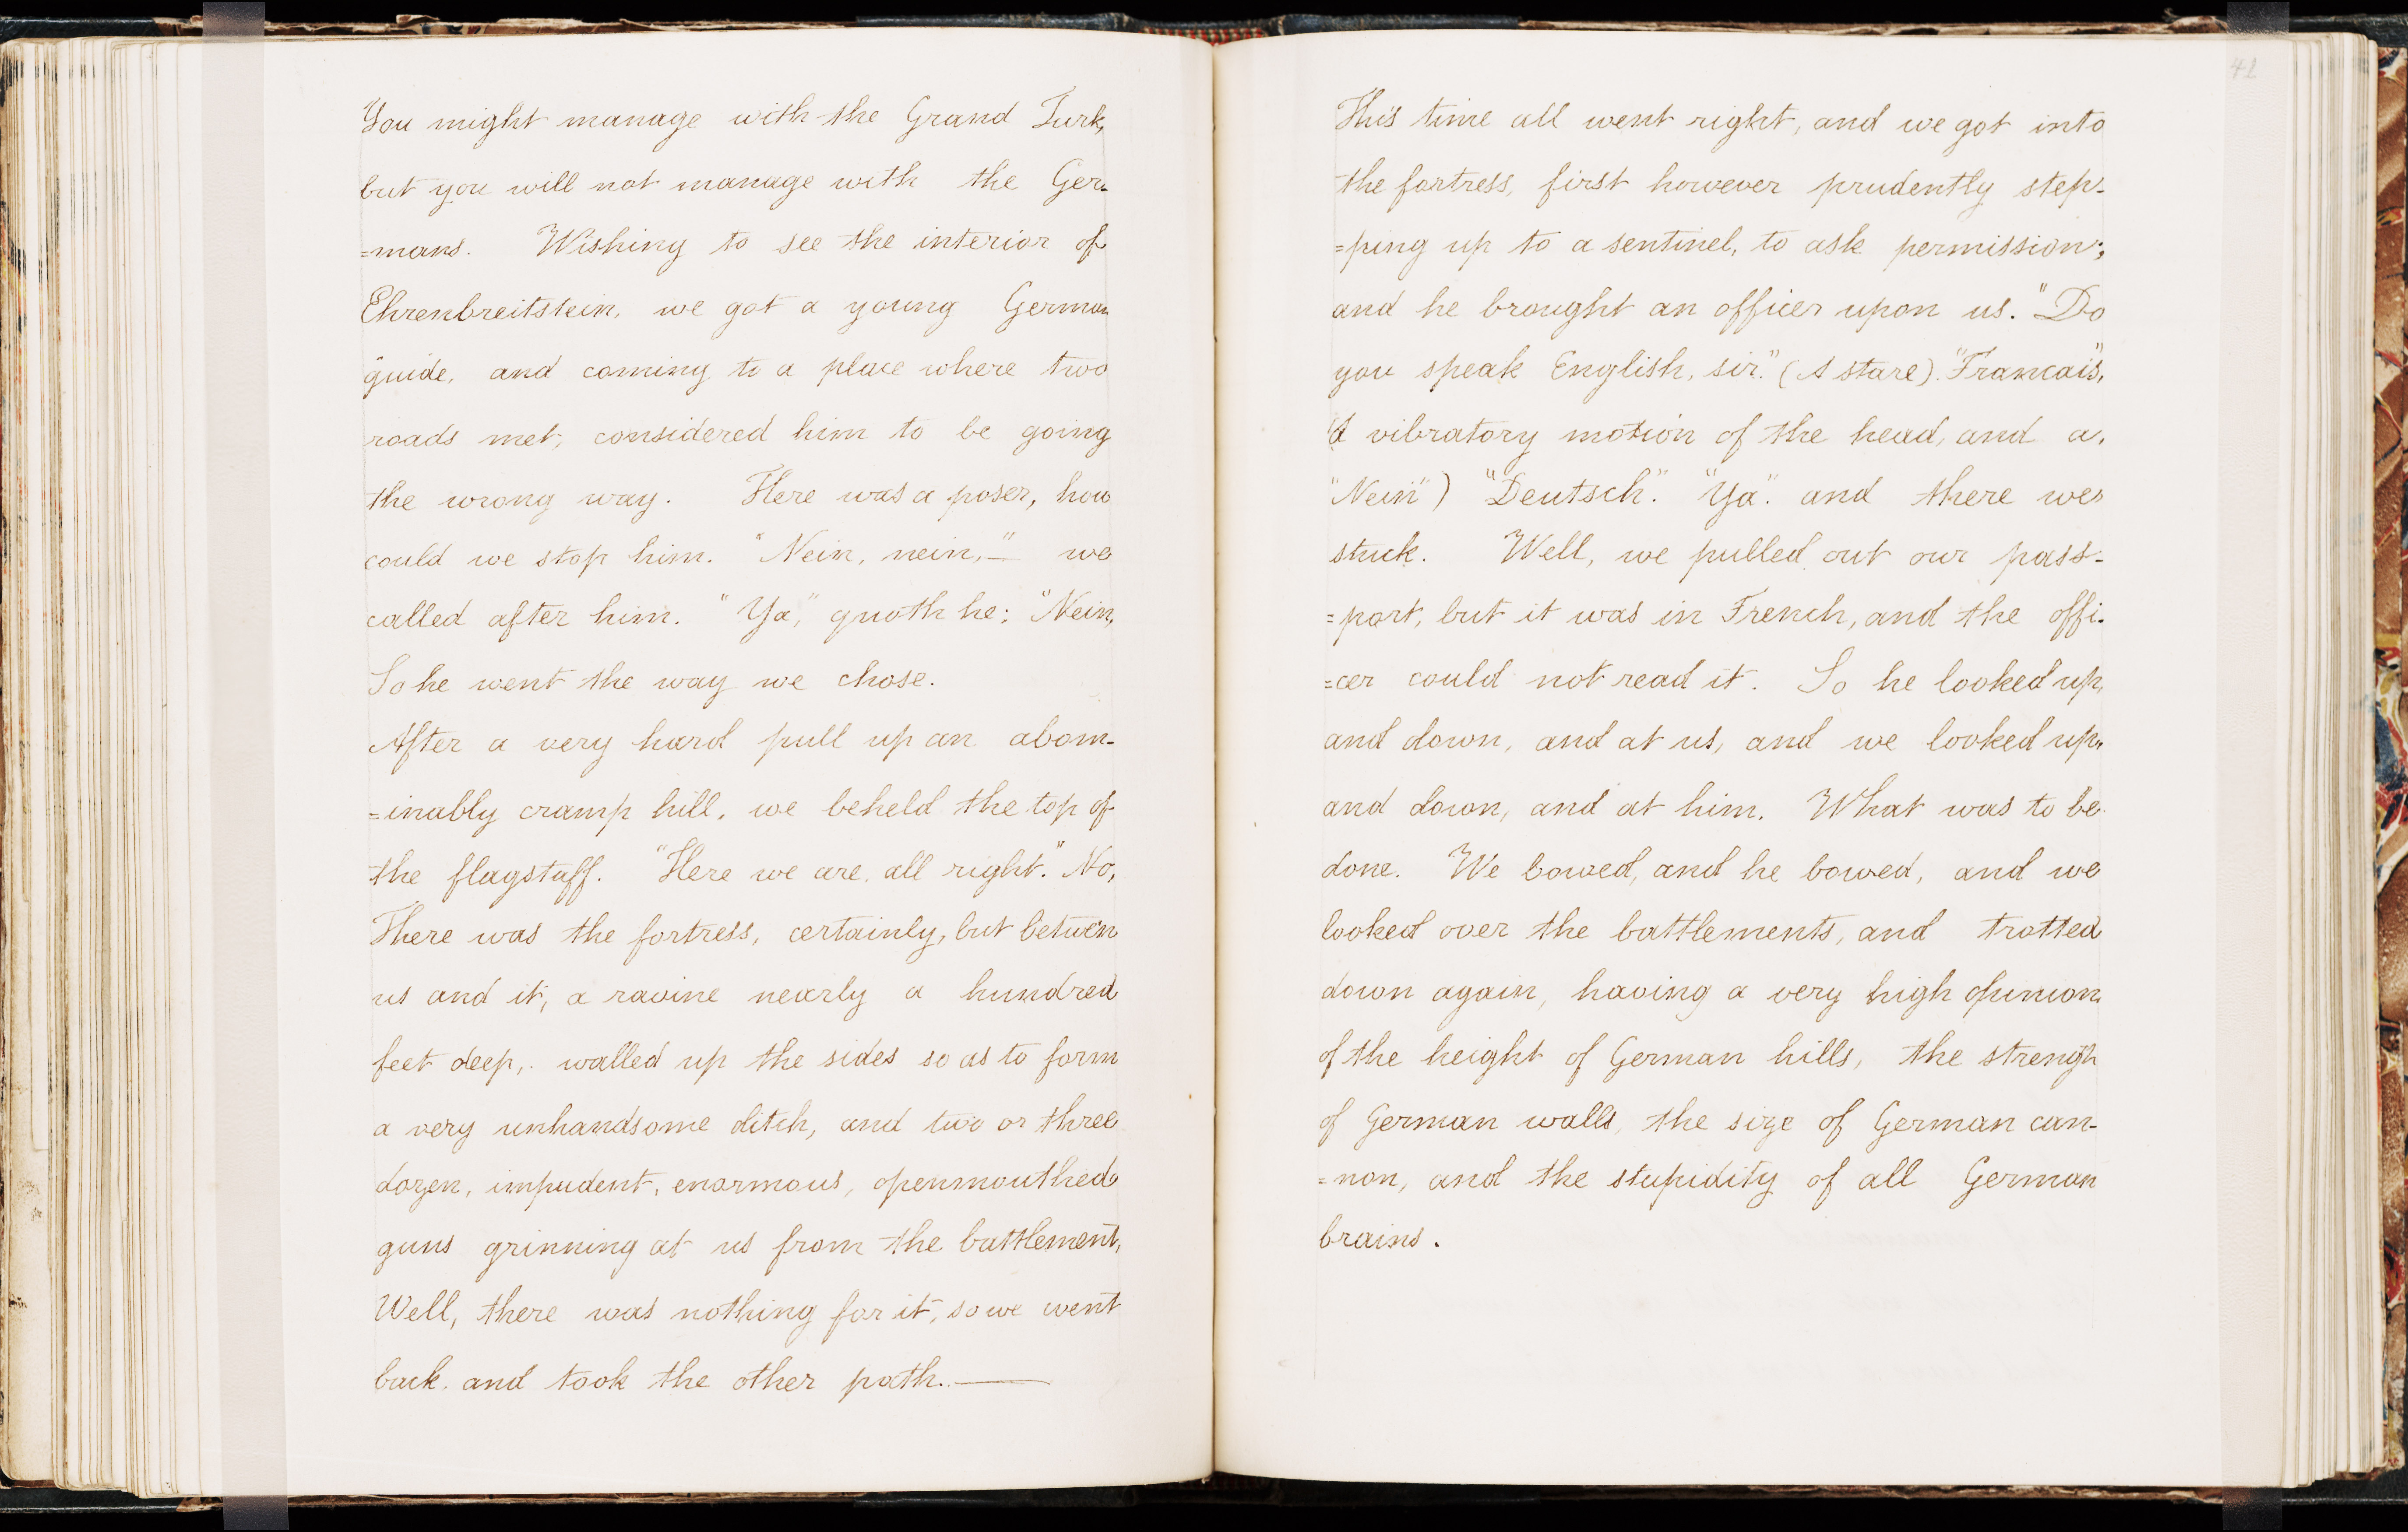 You might manage with the Grand Turk,
but you will not manage with the Ger-
=mans. Wishing to see the interior of
Ehrenbreitstein, we got a young German
guide, and coming to a place where two
roads met, considered him to be going
the wrong way. Here was a poser, how
could we stop him. "Nein, nein,—" we
called after him. "Ya," quoth he; "Nein,
So he went the way we chose.
After a very hard pull up an abom-
=inably cramp hill, we beheld the top of
the flagstaff. "Here we are, all right." No,
There was the fortress, certainly, but between
us and it, a ravine nearly a hundred
feet deep, walled up the sides so as to form
a very unhandsome ditch, and two or three
dozen, impudent, enormous, openmouthed
guns grinning at us from the battlement,
Well, there was nothing for it, so we went
back and took the other path.—
42
This time all went right, and we got into
the fortress, first however prudently step-
=ping up to a sentinel, to ask permission;
and he brought an officer upon us. "Do
you speak English, sir." (A stare). "Francais",
(A vibratory motion of the head, and a,
"Nein") "Deutsch". "Ya". and there we
stuck. Well, we pulled out our pass-
=port, but it was in French, and the offi-
=cer could not read it. So he looked up,
and down, and at us, and we looked up,
and down, and at him. What was to be
done. We bowed, and he bowed, and we
looked over the battlements, and trotted
down again, having a very high opinion
of the height of German hills, the strength
of German walls, the size of German can-
=non, and the stupidity of all German
brains.